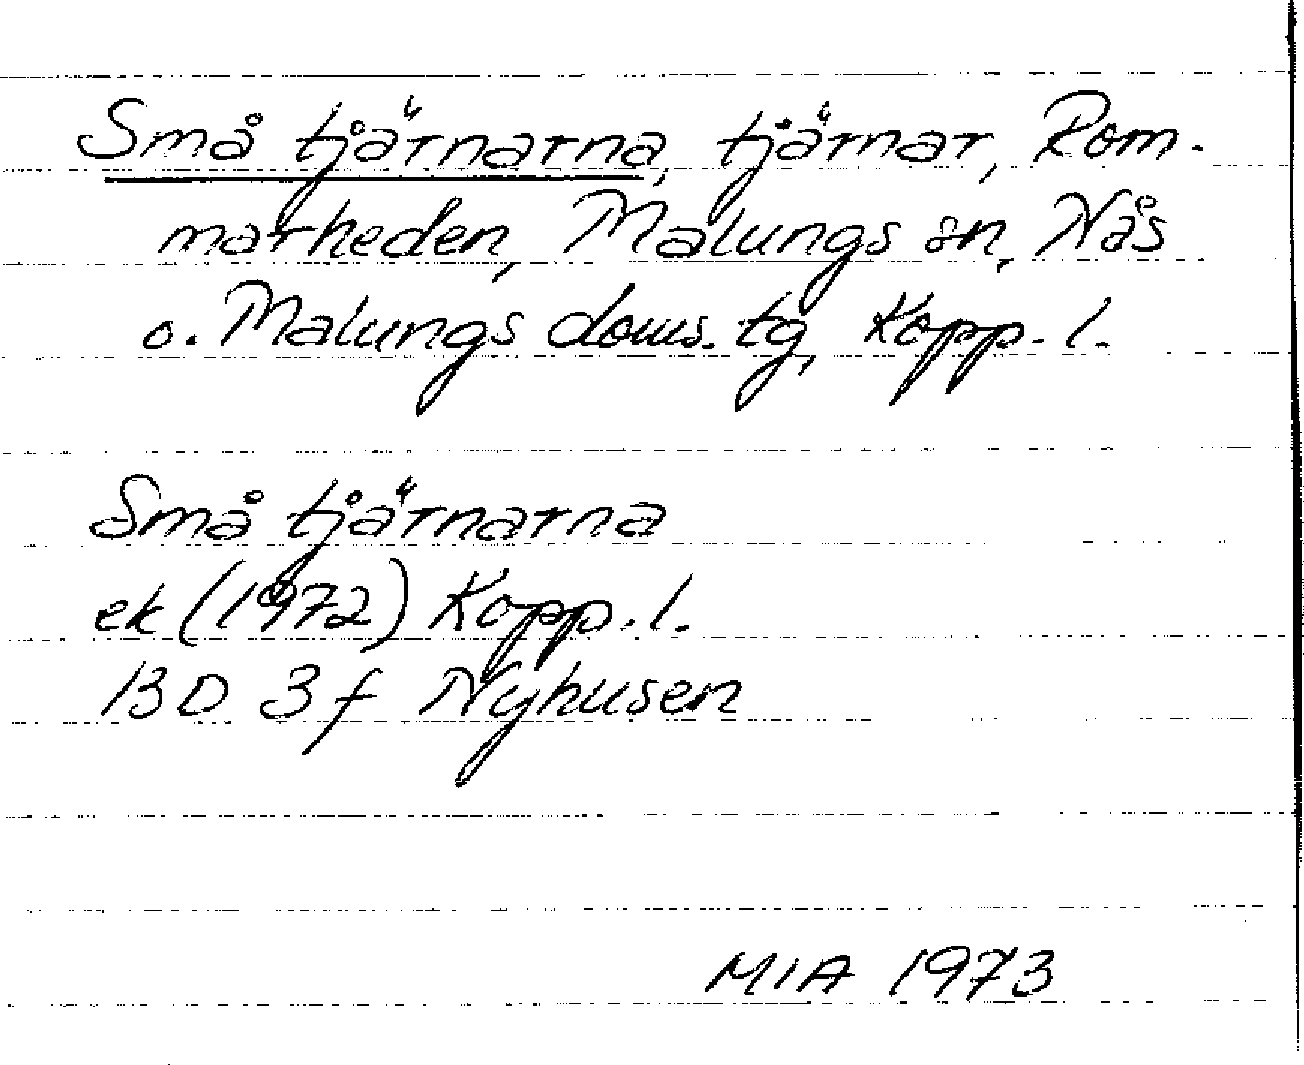 Små tjärnarna, tjärnar, Rom-
marheden, Malungs sn, Nås
o. Malungs doms. tg, Kopp. l.
Små tjärnarna
ek (1972) Kopp. l.
13D 3f Nyhusen
MIA 1973